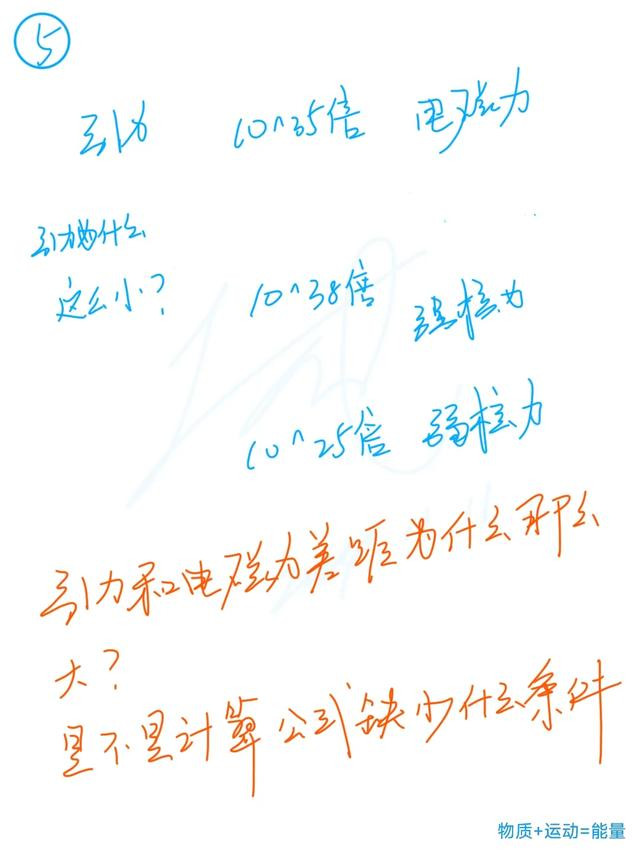 ⑤
引力 10^35倍 电磁力
引力为什么
这么小? 10^38倍 强核力
10^25倍 弱核力
引力和电磁力差距为什么那么
大?
是不是计算公式缺少什么条件
物质+运动=能量